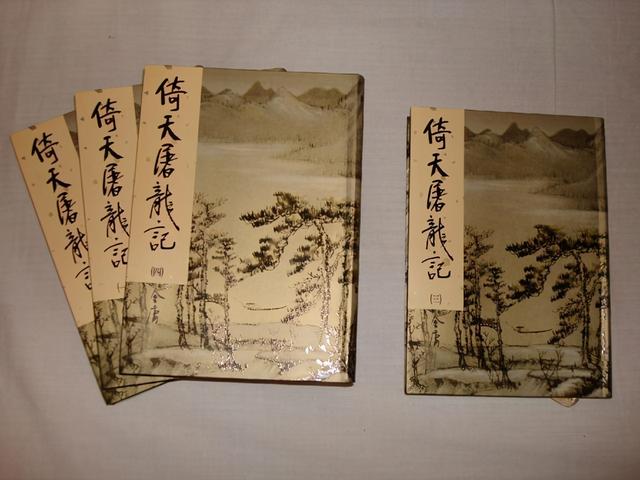 倚天屠龍記
倚天屠龍記
倚天屠龍記
(四)
金庸
倚天屠龍記
(三)
金庸